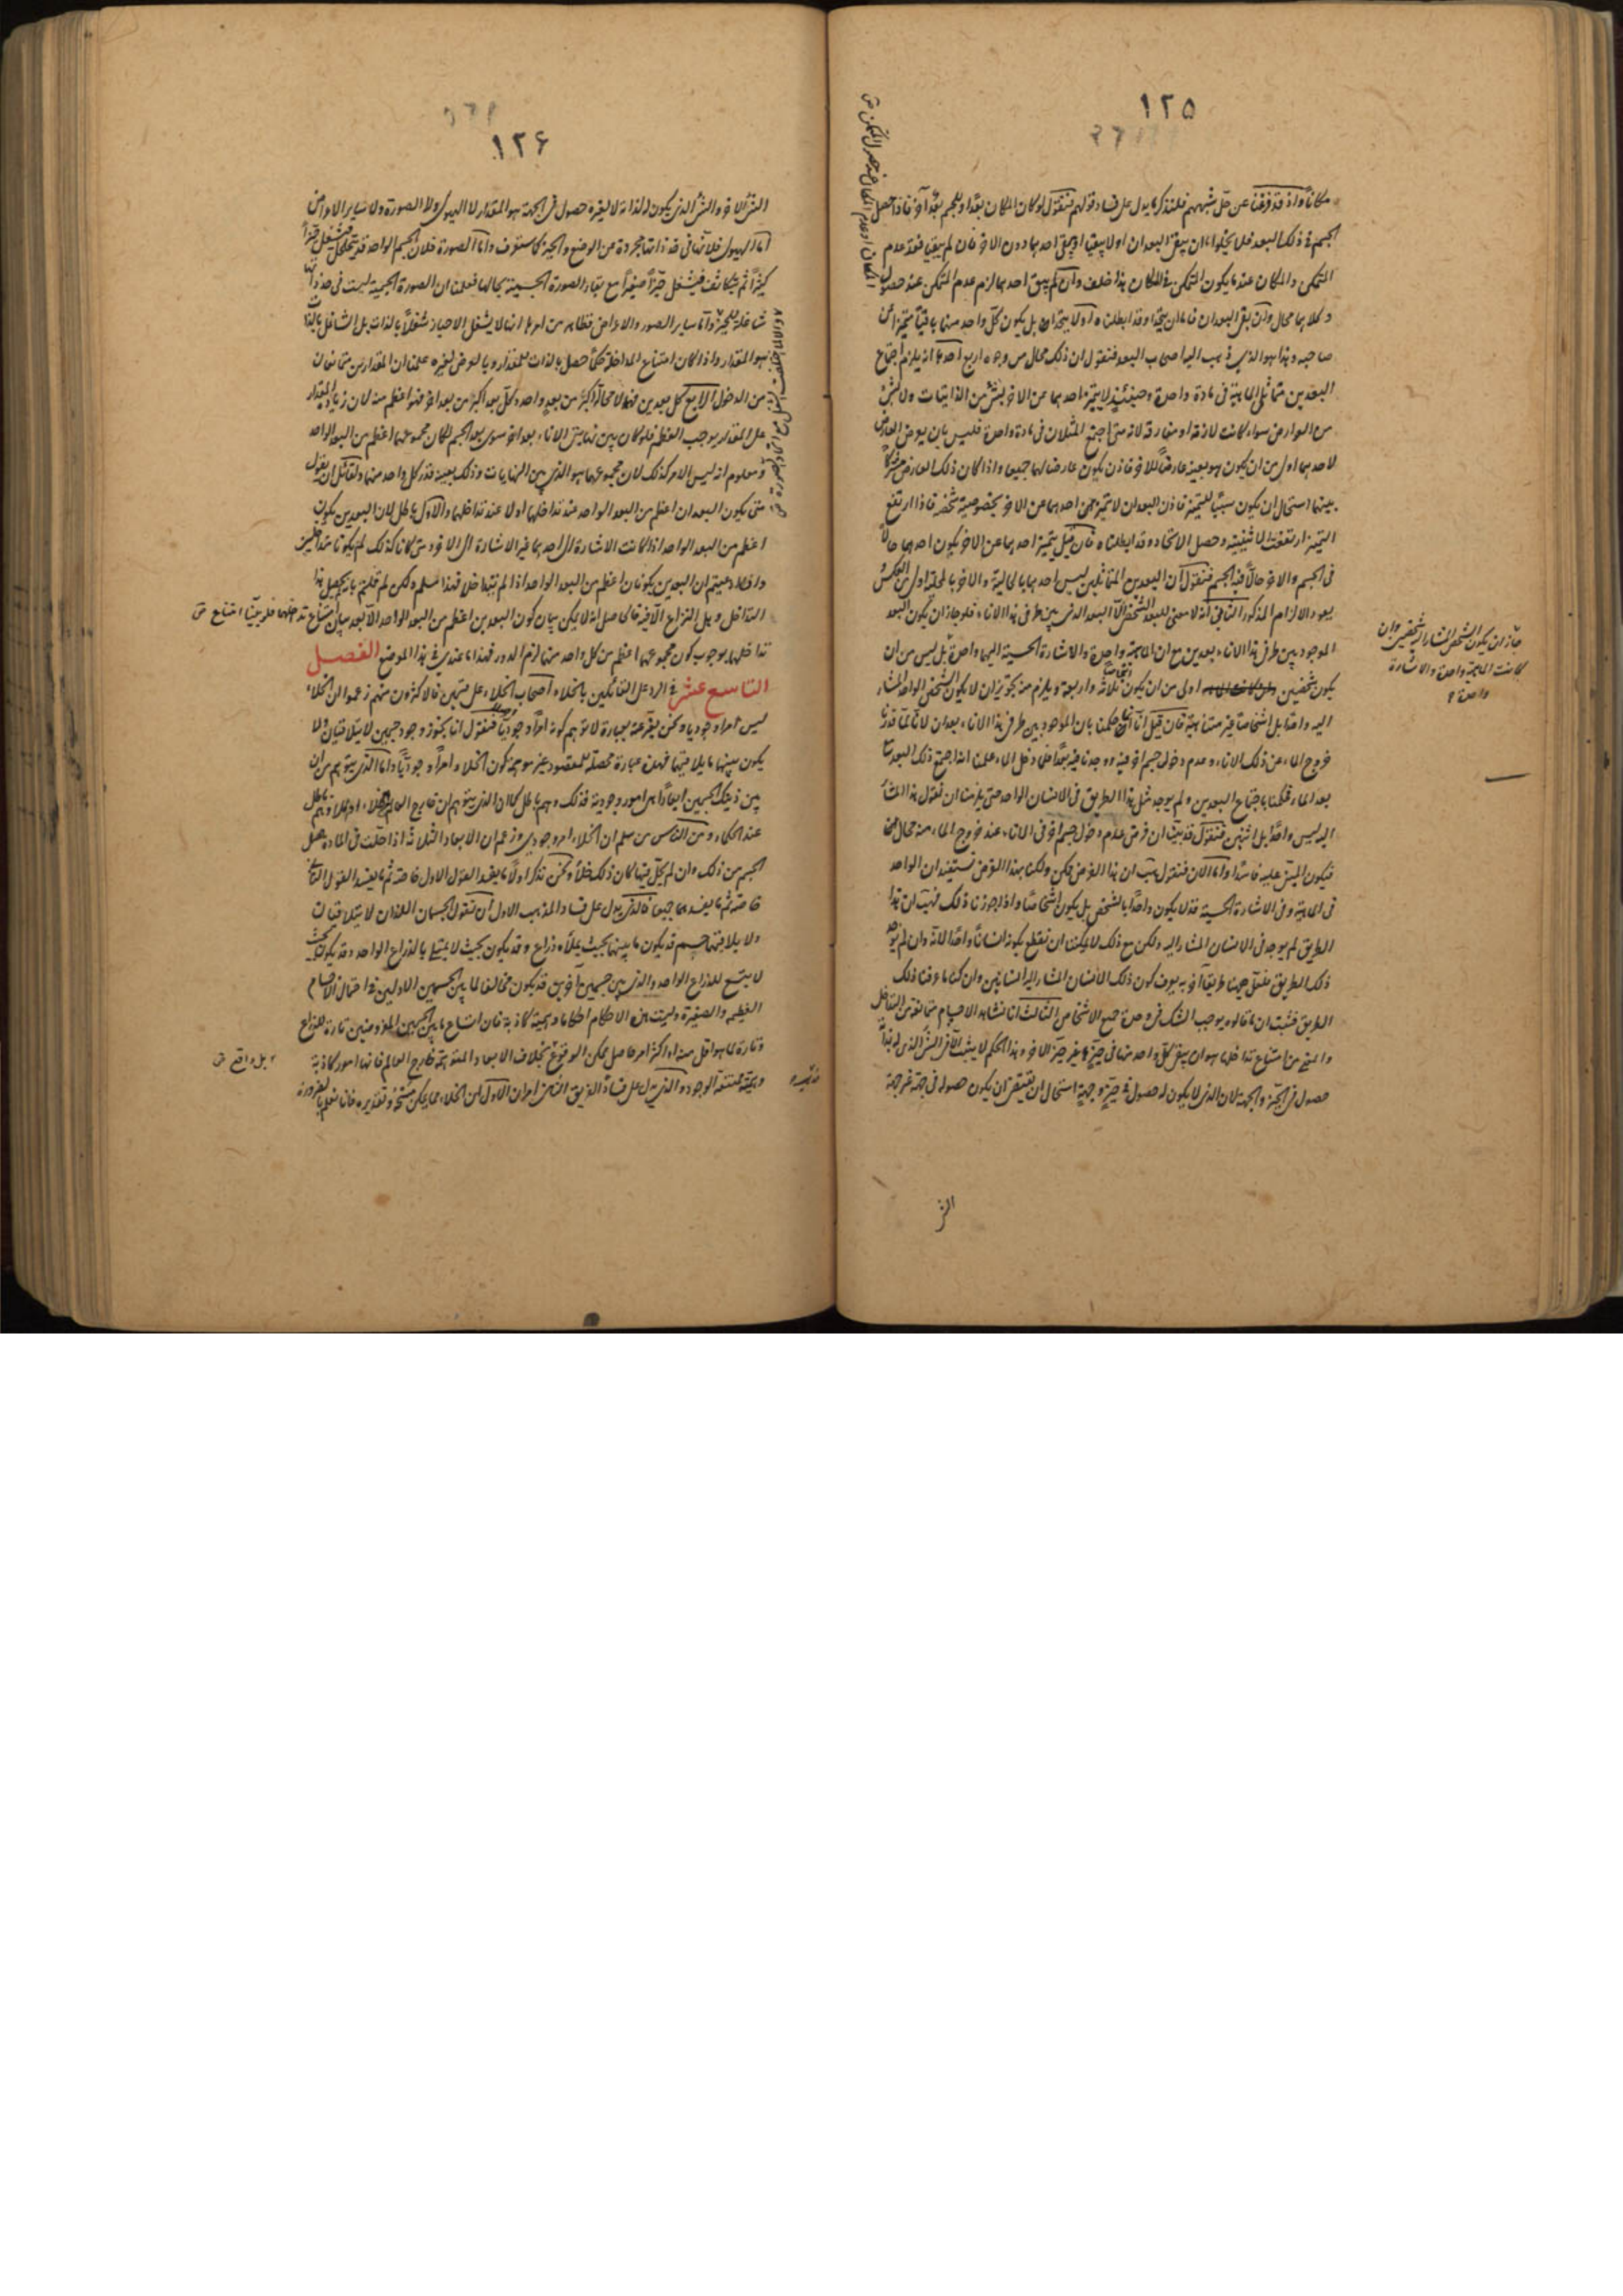 ١٢٥
مكاناً واذ قد فرغنا عن حل شبههم فلنذكر ما يدل على فساد قولهم فنقول لو كان المكان بعداً وللجسم بعد آخر فاذا حصل
الجسم فى ذلك البعد فلا يخلوا اما ان يبقى البعدان او لا يبقيا او يبقى احدهما دون الاخر فان لم يبقيا فقد عدم
المتمكن والمكان عند ما يكون المتمكن فى المكان هذا خلف وان لم يبق احدهما لزم عدم المتمكن عند حصوله
وكلاهما محال وان بقى البعدان فاما ان يتحدا وقد ابطلناه او لا يتحدان بل يكون كل واحد منهما باقياً متميزاً عن
صاحبه وهذا هو الذى ذهب اليه اصحاب البعد فنقول ان ذلك محال من وجوه اربع احدها انه يلزم اجتماع
البعدين متماثلى الماهية فى مادة واحدة وحينئذ لا يتميز احدهما عن الاخر بشئ من الذاتيات ولا بشئ
من العوارض سواء كانت لازمة او مفارقة لانه متى اجتمع المثلان فى مادة واحدة فليس بان يعرض العارض
لاحدهما اولى من ان يكون هو بعينه عارضاً للاخر فاذن يكون عارضا لهما جميعا واذا كان ذلك العارض مشتركاً
بينهما استحال ان يكون سبباً للتميز فاذن البعدان لا تميز احدهما عن الاخر بخصوصية شخصه فاذا ارتفع
التميز ارتفعت الاثنينية وحصل الاتحاد وقد ابطلناه فان قيل يتميز احدهما عن الاخر بكون احدهما حالاً
فى الجسم والاخر حالاً فيه الجسم فنقول ان البعدين المتماثلين ليس احدهما بالحالية والاخر بالمحلية اولى من العكس
يعود الالزام المذكور الثانى انه لا معنى للبعد الشخصى الا البعد الذى بين طرفى هذا الاناء فلو جاز ان يكون البعد
الموجود بين طرفى هذا الاناء بعدين مع ان الماهية واحدة والاشارة الحسية اليهما واحدة بل ليس من ان
يكون شخصين اولى من ان يكون ثلاثة واربعة ويلزم منه تجويز ان لا يكون الشخص الواحد المشار
اليه واحداً بل اشخاصا غير متناهية فان قيل انا انما حكمنا بان الموجود بين طرفى هذا الاناء بعدان لانا لما قدرنا
خروج الماء عن ذلك الاناء وعدم دخول جسم اخر فيه وجدنا فيه بعداً فلما دخل الماء علمنا انه اجتمع ذلك البعد مع
بعد الماء فحكمنا باجتماع البعدين ولم يوجد مثل هذا الطريق فى الانسان الواحد حتى يلزمنا ان نقول هذا المشار
اليه ليس واحداً بل اثنين فنقول قد بينا ان فرض عدم دخول جسم اخر فى الاناء عند خروج الماء منه محال
فيكون المبنى عليه فاسداً واما الان فنقول هب ان هذا الفرض ممكن ولكنا بهذا الفرض نستفيد ان الواحد
فى الماهية وفى الاشارة الحسية قد لا يكون واحداً بالشخص بل يكون اشخاصاً واذا جوزنا ذلك فهب ان هذا
الطريق لم يوجد فى الانسان المشار اليه ولكن مع ذلك لا يمكننا ان نقطع بكونه انساناً واحداً لانه وان لم يوجد
ذلك الطريق فلعل هيهنا طريقاً اخر به يعرف كون ذلك الانسان المشار اليه انسانين وان كنا ما عرفنا ذلك
الطريق فثبت ان ما قالوه يوجب الشك فى وحدة جميع الاشخاص الثالث انا نشاهد الاجسام متمانعة من التداخل
والمعنى من امتناع تداخلها هو ان يبقى كل واحد منها فى حيز غير حيز الاخر وهذا الحكم لا يثبت الا فى الشئ الذى له بذاته
حصول فى الحيز والجهة لان الذى لا يكون له حصول فى حيز وجهة استحال ان يقتضى ان يكون حصوله فى جهة غير جهة
الشئ
جاز ان يكون الشخص المشار اليه شخصين وان
كانت الماهية واحدة والاشارة
واحدة
١٢۶
الشئ الاخر والشئ الذى يكون له لذاته لا لغيره حصول فى الجهة هو المقدار لا الهيولى ولا الصورة ولا سائر الاعراض
اما الهيولى فلانها فى حد ذاتها مجردة عن الوضع والحيز كما ستعرف واما الصورة فلان الجسم الواحد قد يتخلخل فيشغل حيزاً
كبيراً ثم يتكاثف فيشغل حيزاً صغيراً مع بقاء الصورة الجسمية بحالها فعلمنا ان الصورة الجسمية ليست فى حد ذاتها
شاغلة للحيز واما سائر الصور والاعراض فظاهر من امرها انها لا يشغل الاحياز شغلاً بالذات بل الشاغل بالذات
هو المقدار واذا كان امتناع المداخلة حكماً حصل بالذات للمقدار وبالعرض لغيره علمنا ان المقدارين متمانعان
من الدخول الرابع كل بعدين فهما لا محالة اكبر من بعد واحد وكل بعد اكبر من بعد اخر فهو اعظم منه لان زيادة المقدار
على المقدار يوجب العظم فلو كان بين نهايتى الاناء بعد اخر سوى بعد الجسم لكان مجموعهما اعظم من البعد الواحد
ومعلوم انه ليس الامر كذلك لان مجموعهما هو الذى بين النهايات وذلك بعينه قدر كل واحد منهما ولقائل ان يقول
متى يكون البعدان اعظم من البعد الواحد عند تداخلهما او لا عند تداخلهما والاول باطل لان البعدين يكونان
اعظم من البعد الواحد اذا كانت الاشارة الى احدهما غير الاشارة الى الاخر ومتى كانا كذلك لم يكونا متداخلين
وان ادعيتم ان البعدين يكونان اعظم من البعد الواحد اذا لم يتداخلا فهذا مسلم ولكن لم قلتم بانه يحصل هذا
التداخل وهل النزاع الا فيه فالحاصل انه لا يمكن بيان كون البعدين اعظم من البعد الواحد الا بعد بيان امتناع تداخلهما فلو بينا امتناع
تداخلهما بوجوب كون مجموعهما اعظم من كل واحد منهما لزم الدور فهذا ما عندى فى هذا الموضع الفصل
التاسع عشر فى الرد على القائلين بالخلاء اصحاب الخلاء على قسمين فالاكثرون منهم زعموا ان الخلاء
ليس امرا وجوديا ونحن نعبر عنه بعبارة لا توهم كونه امراً وجودياً فنقول انا نجوز وجود جسمين لا يتلاقيان ولا
يكون بينهما ما يلاقيهما فهذه عبارة محصلة للمقصود غير موهمة كون الخلاء امراً وجودياً واما الذى يتوهم من ان
بين ذينك الجسمين ابعاداً هى امور وجودية فذلك وهم باطل كما ان الذى يتوهم ان خارج العالم خلاء او ملاء وهم باطل
عند الحكماء ومن الناس من سلم ان الخلاء امر وجودى وزعم ان الابعاد الثلاثة اذا حلت فى المادة حصل
الجسم من ذلك وان لم يحل فيها كان ذلك خلاءً ونحن نذكر اولاً ما يفسد القول الاول خاصة ثم ما يفسد القول الثانى
خاصة ثم ما يفسدهما جميعا فالذى يدل على فساد المذهب الاول ان نقول الجسمان اللذان لا يتلاقيان
ولا يلاقيهما جسم قد يكون ما بينهما بحيث يملأه ذراع وقد يكون بحيث لا يمتلئ بالذراع الواحد وقد يكون بحيث
لا يتسع للذراع الواحد والذى بين جسمين آخرين قد يكون مخالفا لما بين الجسمين الاولين فى احتمال الاجسام
العظيمة والصغيرة وليست هذه الاحكام احكاما وهمية كاذبة فان اتساع ما بين الجسمين تارة للذراع
وتارة لما هو اقل منه او اكثر امر حاصل ممكن الوقوع بخلاف الابعاد المتوهمة خارج العالم فانها امور كاذبة
وهمية ممتنعة الوجود والذى يدل على فساد الفريق الثانى امران الاول ان الخلاء مما يمكن مسحه وتقديره فانا نعلم بالضرورة
بل واقع ص